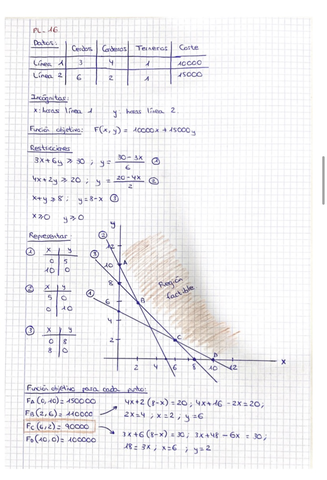 PL. 16
Datos: Cerdos Corderos Terneros Coste
Línea 1 3 4 1 10000
Línea 2 6 2 1 15000
Incógnitas:
x: horas línea 1 y: horas línea 2.
Función objetivo: F(x, y) = 10000x + 15000y
Restricciones
3x + 6y ≥ 30 ; y = (30 - 3x)/6 ①
4x + 2y ≥ 20 ; y = (20 - 4x)/2 ②
x + y ≥ 8 ; y = 8 - x ③
x ≥ 0 y ≥ 0
Representar:
① x y
0 5
10 0
② x y
5 0
0 10
③ x y
0 8
8 0
y
② 12
10 A
③ 8
6 B
① 4
2 C
D
2 4 6 8 10 12 x
Región
factible
Función objetivo para cada punto:
FA (0, 10) = 150000
FB (2, 6) = 110000
FC (6, 2) = 90000
FD (10, 0) = 100000
4x + 2(8 - x) = 20 ; 4x + 16 - 2x = 20 ;
2x = 4 ; x = 2 , y = 6
3x + 6(8 - x) = 30 ; 3x + 48 - 6x = 30 ;
18 = 3x , x = 6 ; y = 2